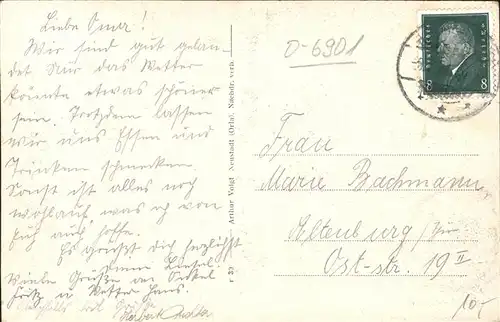 Liebe Oma!
Wir sind gut gelan-
det Nur das Wetter
könnte etwas schöner
sein. Trotzdem lassen
wir uns Essen und
Trinken schmecken
Sonst ist alles noch
wohlauf, was ich von
Euch auch hoffe.
Es grüßt Dich herzlichst
Deine Liesel.
Viele Grüße an Onkel
Fritz u Vetter Hans.
Arthur Voigt Neustadt (Orla). Nachdr. verb
r 29
D-6901
Deutsches Reich
8 8
Frau
Marie Bachmann
Altenburg/Thür
Ost-str. 19 II
10,-